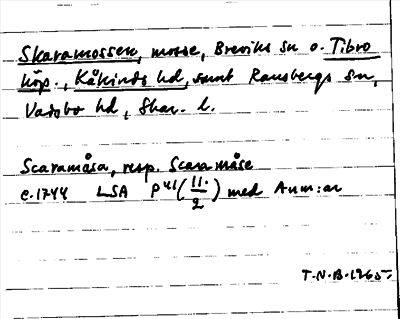 Skaramossen, mosse, Breviks sn o. Tibro
köp., Kåkinds hd, samt Ransbergs sn,
Vadsbo hd, Skar. l.
Scaramåsa, resp. Scara måse
c. 1744 LSA P 41 (11:2) med Anm:ar
T.N.B. 1965